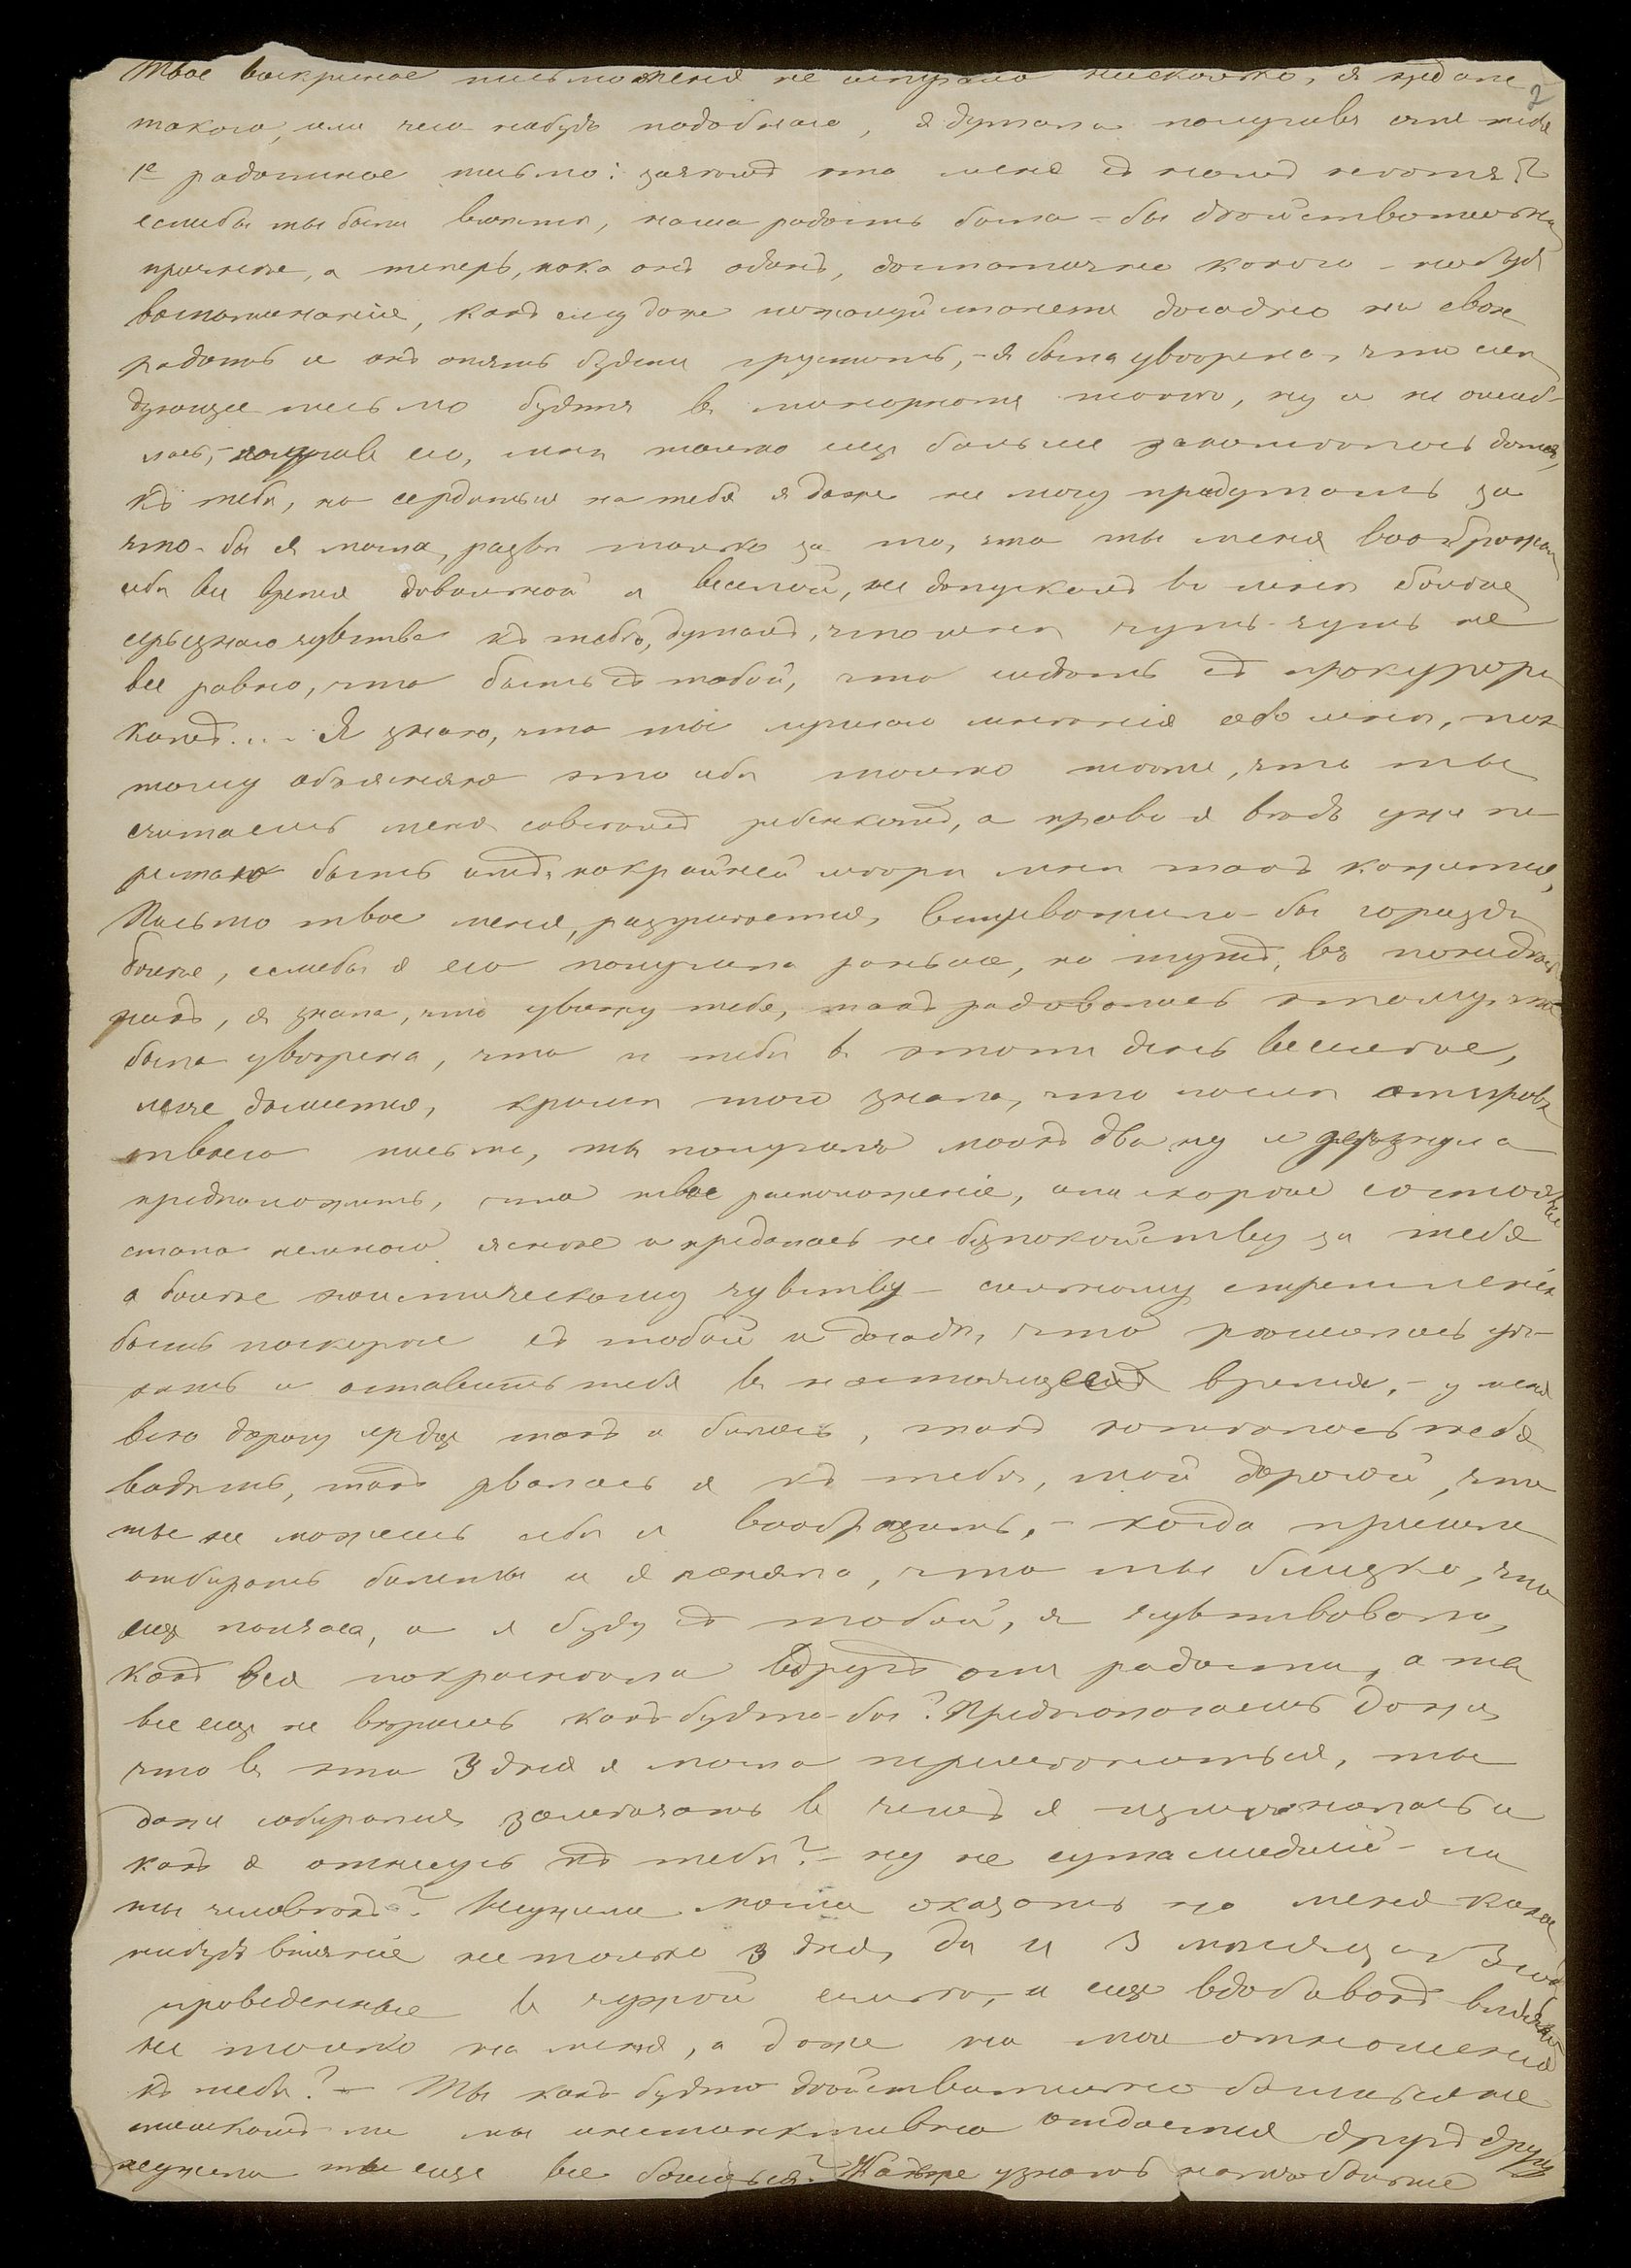 Твое воскресное письмо меня не испугало нисколько, я ждала
такого, или чего нибудь подобнаго, я думала получивъ отъ тебя
1е радостное письмо:
еслибы ты былъ вместе, наша радость была-бы действительно
прочнее, а теперь, пока онъ одинъ, достаточно какого-нибудь
воспоминанія, какъ ему даже пожалуй станетъ досадно на свою
радость и онъ опять будетъ грустить, - я была уверена, что сле
дующее письмо будетъ в минорномъ тоне, ну и не ошиб-
лась, - получив его, мне только еще больше захотелось домой,
къ тебе, но сердиться на тебя я даже не могу придумать за
что-бы я могла, разве только за то, что ты меня воображаешь
себе все время довольной и веселой, не допускаешь во мне более
серьезнаго чувства къ тебе, думаешь, что мне чуть-чуть не
все равно, что быть съ тобой, что сидеть съ
.... Я знаю, что ты лучшаго мненія обо мне, поэ
тому объясняю это себе только темъ, что ты
считаешь меня совсемъ ребенкомъ, а право я ведь уже пе
рестаю быть имъ, покрайней мере мне такъ кажется,
Письмо твое меня, разумеется, встревожило-бы гораздо
более, еслибы я его получила раньше, но тутъ, въ понедель
никъ, я знала, что увижу тебя, такъ радовалась этому, что
была уверена, что и тебе в этотъ день веселее,
легче дышется, кроме того знала, что после отправки
твоего письма, ты получилъ моихъ два, ну и дерзнула
предположить, что твое расположеніе, или скорее состоянье
стало немного яснее и предалась не безпокойству за тебя
а более эгоистическому чувству - сильному стремленію
быть поскорее съ тобой и досаде, что решилась уе-
хать и оставить тебя в настоящее время, - у меня
всю дорогу сердце такъ и билось, такъ хотелось тебя
видеть, такъ рвалась я къ тебе, мой дорогой, что
ты не можешь себе и вообразить, - когда пришли
отбирать билеты и я поняла, что ты близко, что
еще полчаса, и я буду съ тобой, я чувствовала,
какъ вся покраснела вдругъ отъ радости, а ты
все еще не веришь какъ будто-бы? Предполагаешь даже,
что в эти 3 дня я могла перемениться, ты
даже собирался замечать в чемъ я изменилась и
какъ я отнесусь къ тебе? - ну не сумасшедшій-ли
ты человекъ? Неужели могли оказать на меня какое
нибудь вліяніе не только 3 дня, да и 3 месяца, 3 года
проведенные в чужой семье, и еще вдобавокъ вліянье
не только на меня, а даже на мои отношенія
къ тебе? - Ты какъ будто действительно боишься не
слишкомъ-ли мы инстинктивно отдаемся другъ другу
неужели ты еще все боишься? Надо-же узнать насколько больше